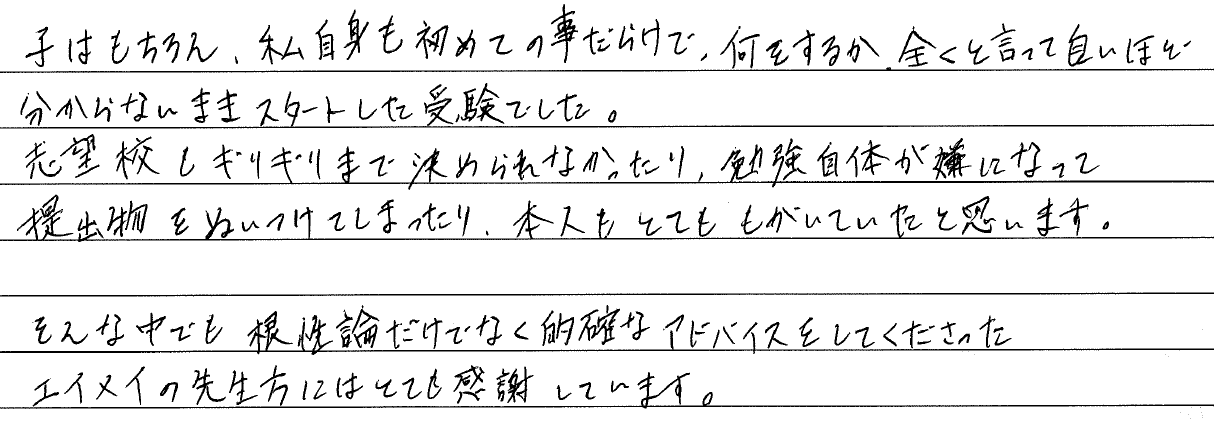 子はもちろん、私自身も初めての事だらけで、何をするか、全くと言って良いほど
分からないままスタートした受験でした。
志望校もギリギリまで決められなかったり、勉強自体が嫌になって
提出物をぬいつけてしまったり、本人もとてももがいていたと思います。
そんな中でも根性論だけでなく的確なアドバイスをしてくださった
エイメイの先生方にはとても感謝しています。